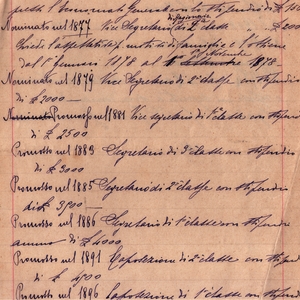 presso l'Economato Generale con stipendio di £ 150
di Ragioneria
Nominato nel 1877 Vice Segretario di 2ª classe " £ 200
Chiede l'aspettativa per motivi di famiglia e l'ottiene
dal 1° Gennaio 1878 al 1° Settembre 1878
Nominato nel 1879 Vice Segretario di 2ª classe con stipendio
di £ 2000 —
Nominato Promosso nel 1881 Vice segretario di 1ª classe con stip
di £ 2500
Promosso nel 1883 Segretario di 3ª classe con stipendio
di £ 3000
Promosso nel 1885 Segretario di 2ª classe con stipendio
di £ 3500 —
Promosso nel 1886 Segretario di 1ª classe con stipendio
annuo di £ 4000
Promosso nel 1891 Caposezione di 2ª classe con stipendio
di £ 4500
Promosso nel 1896 Caposezione di 1ª classe con stip